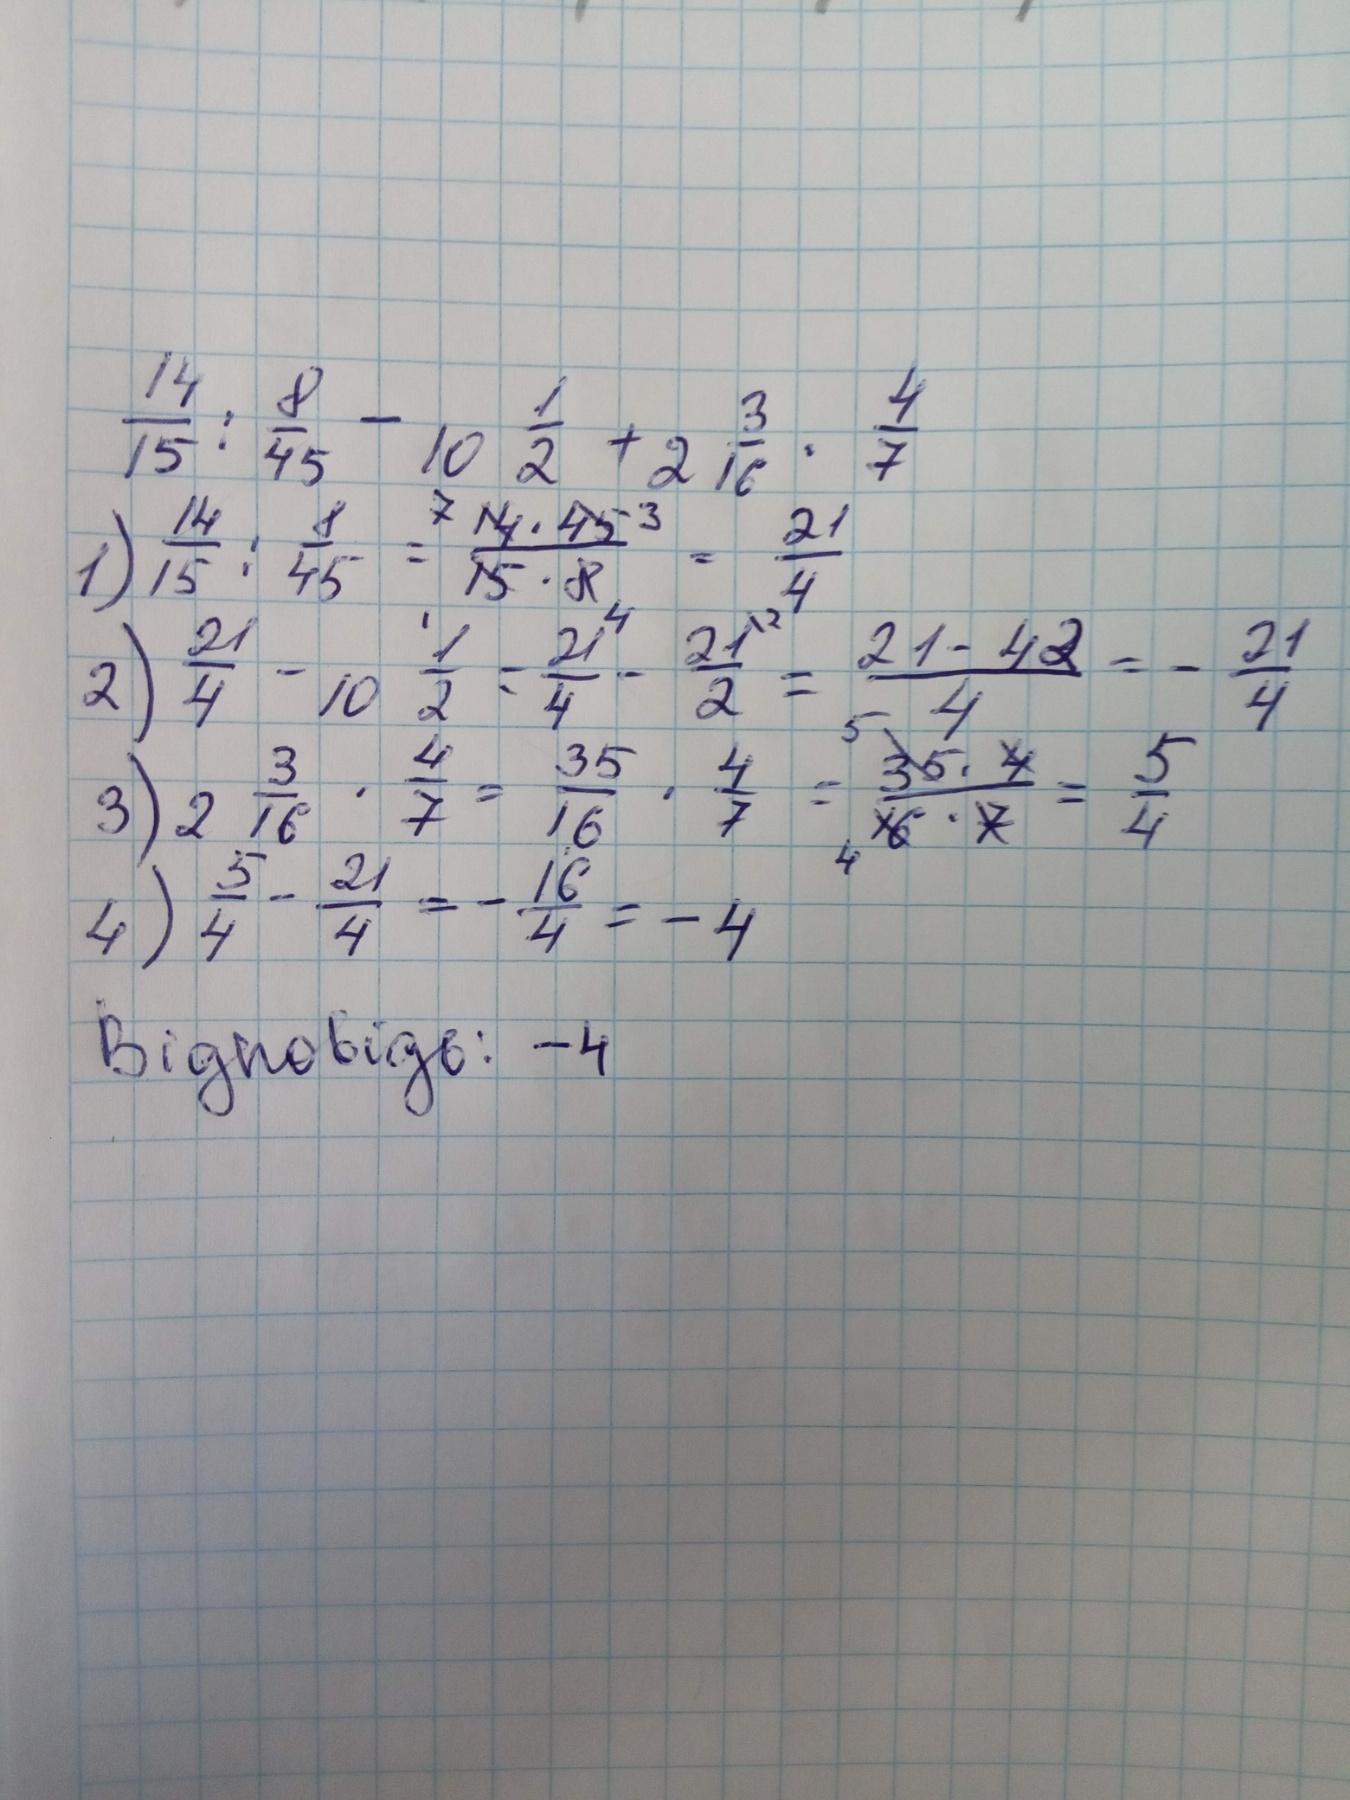 14/15 : 8/45 - 10 1/2 + 2 3/16 · 4/7
1) 14/15 : 8/45 = 7 14 · 45 3 / 15 · 8 = 21/4
2) 21/4 - 10 1/2 = 21/4 - 21/2 = 21 - 42 / 4 = - 21/4
3) 2 3/16 · 4/7 = 35/16 · 4/7 = 5 35 · 4 / 4 16 · 7 = 5/4
4) 5/4 - 21/4 = - 16/4 = - 4
Відповідь: -4